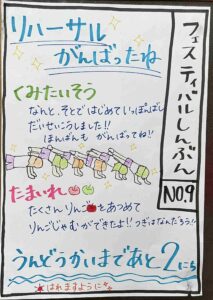 リハーサル
がんばったね
フェスティバルしんぶん
NO.9
くみたいそう
なんと、そとではじめていっぽんばし
だいせいこうしました!!
ほんばんも がんばってね!!
たまいれ
たくさんりんごをあつめて
りんごじゃむができたよ!! つぎはなんだろう!?
うんどうかいまであと2にち
はれますように